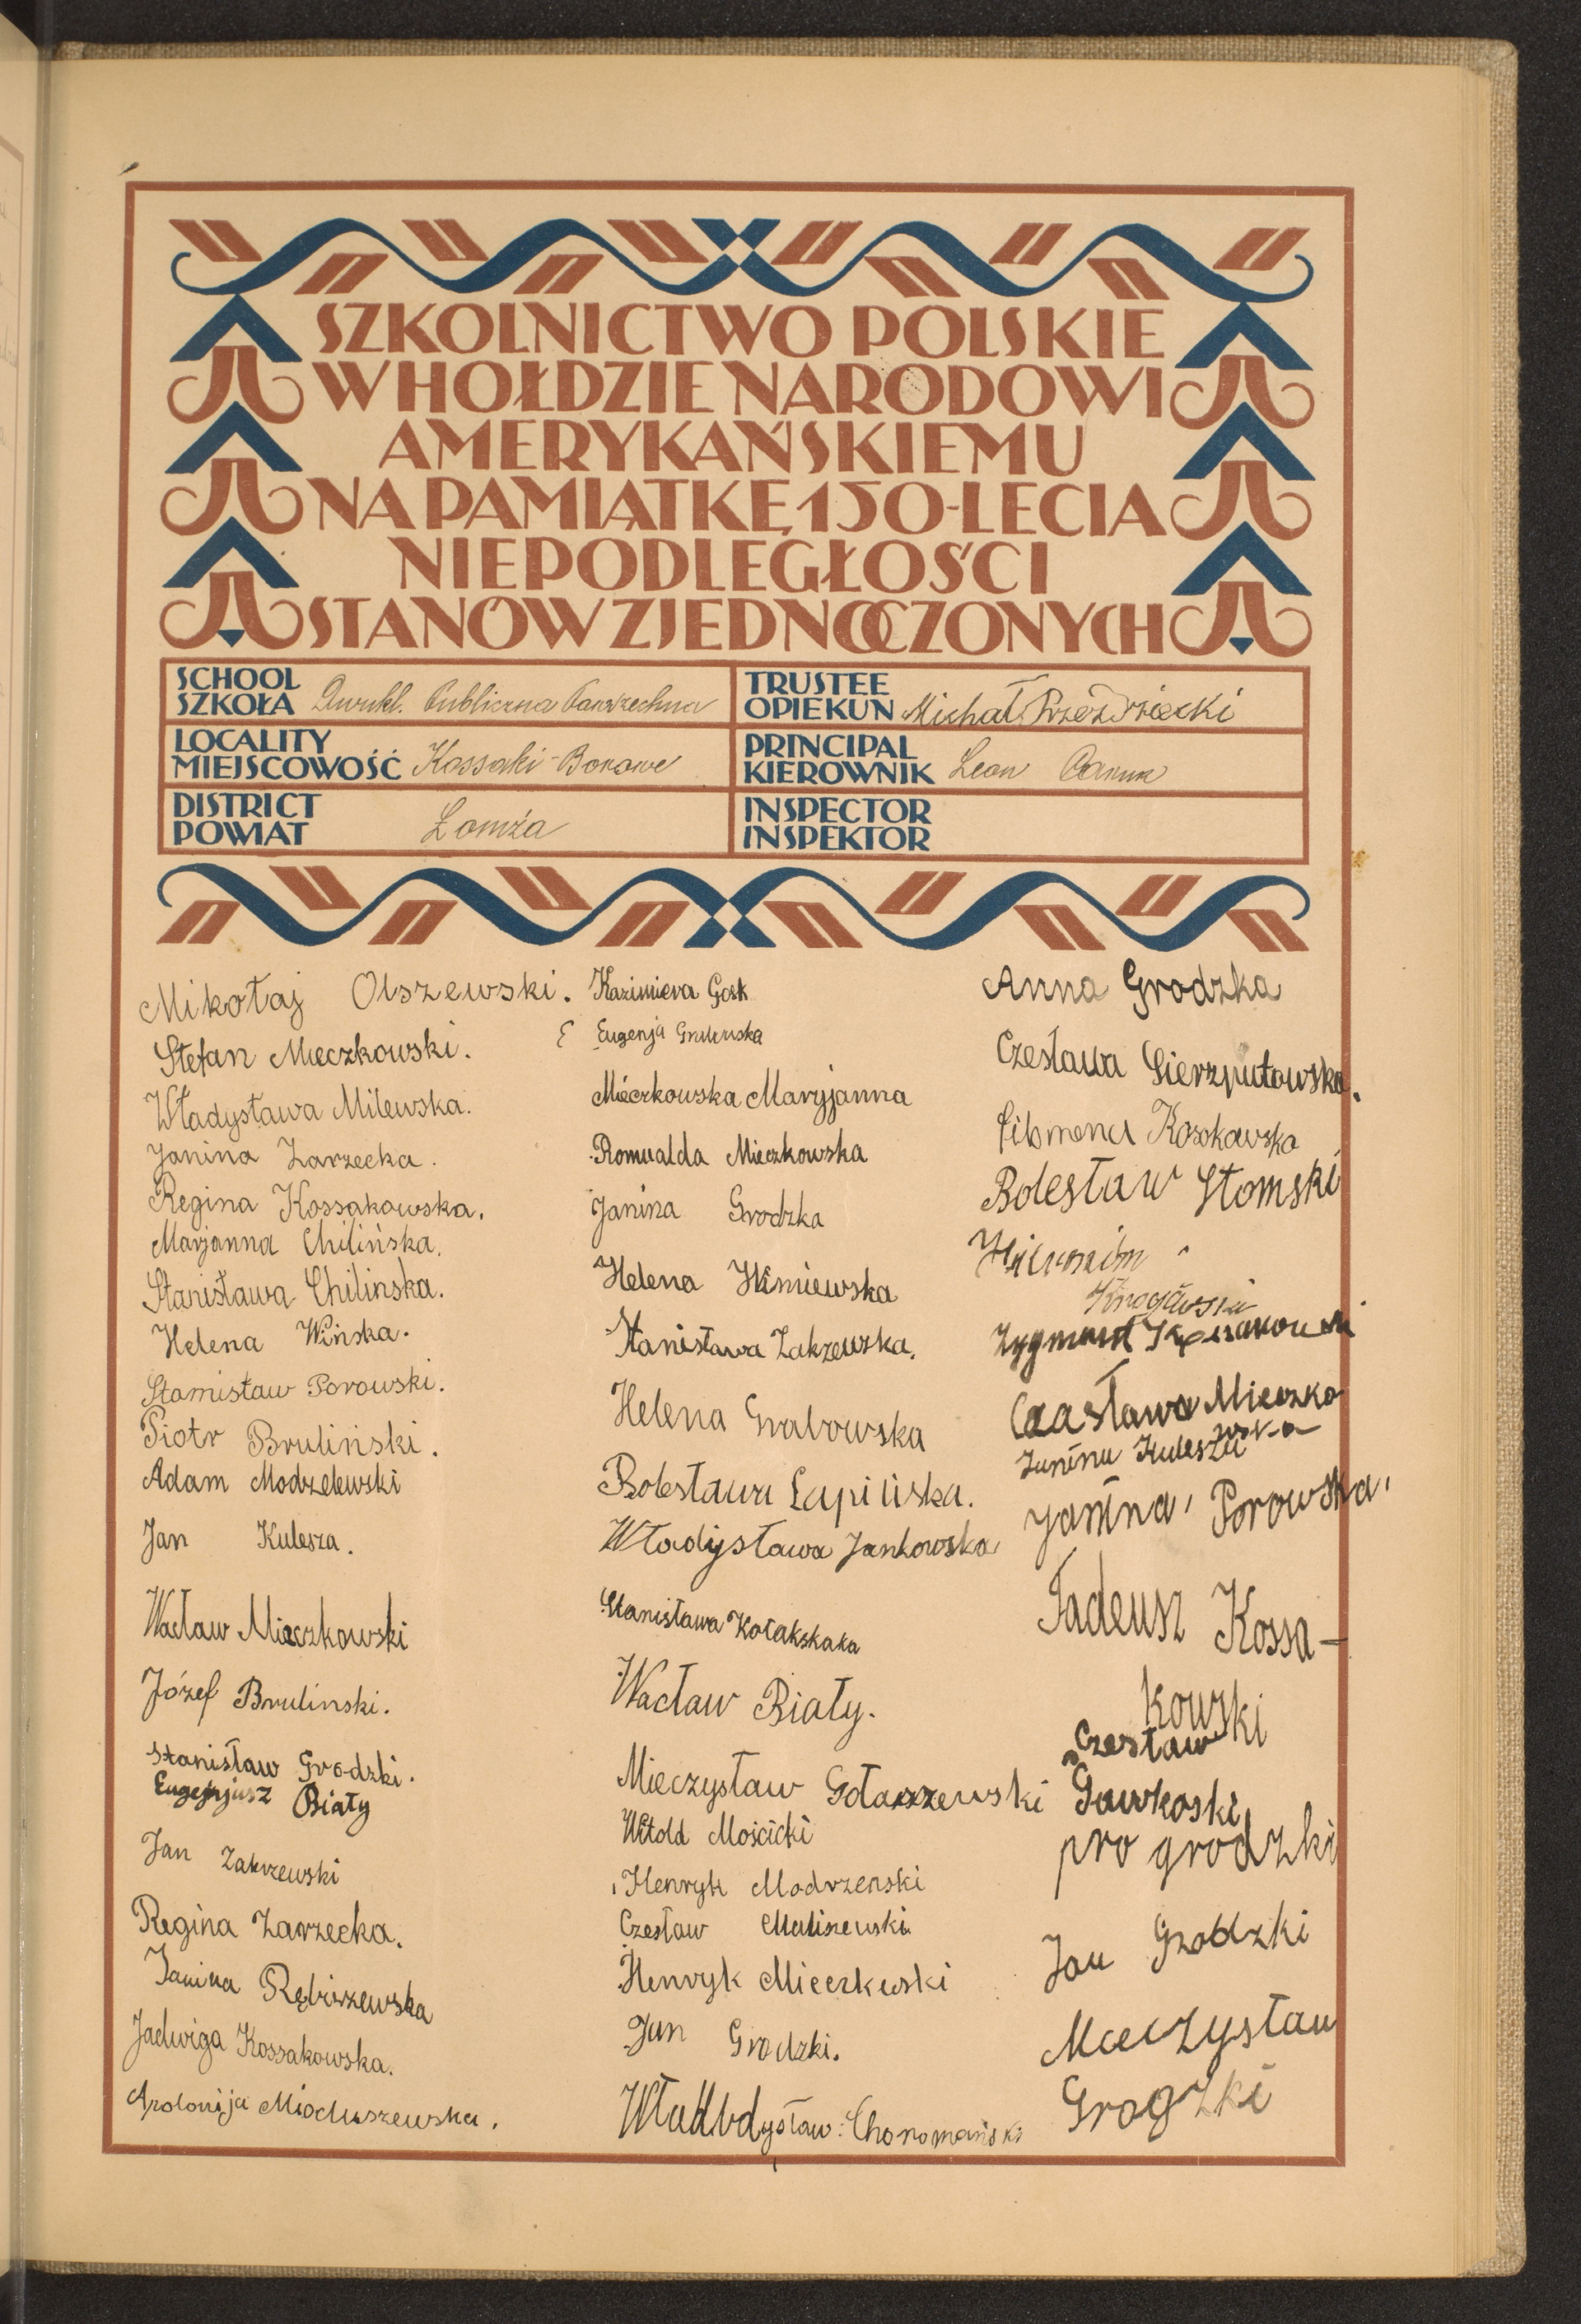 SZKOLNICTWO POLSKIE
W HOŁDZIE NARODOWI
AMERYKAŃSKIEMU
NA PAMIĄTKĘ 150-LECIA
NIEPODLEGŁOŚCI
STANÓW ZJEDNOCZONYCH
SCHOOL
SZKOŁA Dwukl. Publiczna Powszechna
TRUSTEE
OPIEKUN Michał Przeździecki
LOCALITY
MIEJSCOWOŚĆ Kossaki-Borowe
PRINCIPAL
KIEROWNIK Leon
DISTRICT
POWIAT Łomża
INSPECTOR
INSPEKTOR
Mikołaj Olszewski.
Stefan Mieczkowski.
Władysława Milewska.
Janina Zarzecka.
Regina Kossakowska.
Marjanna Chilińska.
Stanisława Chilinska.
Helena Wińska.
Stanisław Porowski.
Piotr Bruliński.
Adam Modzelewski
Jan Kulesza.
Wacław Mieczkowski
Józef Brulinski.
Stanisław Grodzki.
Eugenjusz Biały
Jan Zakrzewski
Regina Zarzecka.
Janina Rębiszewska
Jadwiga Kossakowska.
Apolonija Mioduszewska.
Kazimiera Gosk
Eugenja
Mieczkowska Maryjanna
Romualda Mieczkowska
Janina Grodzka
Helena Wiśniewska
Stanisława Zakrzewska.
Helena Grabowska
Bolesława Łapińska.
Władysława Jankowska
Stanisława Kołakskaka
Wacław Biały.
Mieczysław Gołaszewski
Witold Mościcki
Henryk
Czesław Maliszewski
Henryk Mieczkowski
Jan Grodzki.
Władysław: Choromański
Anna Grodzka
Czesława Sierzputowska.
Filomena Kosokowska
Bolesław Słomski
Hieronim
Zygmunt Kossakowski
Czasława Mieczko
wska
Janina Kulesza
Janina Porowska
Tadeusz Kossa-
kowski
Czesław
Gawkoski
pro grodzki
Jan Grodzki
Mieczysław
Grogzki